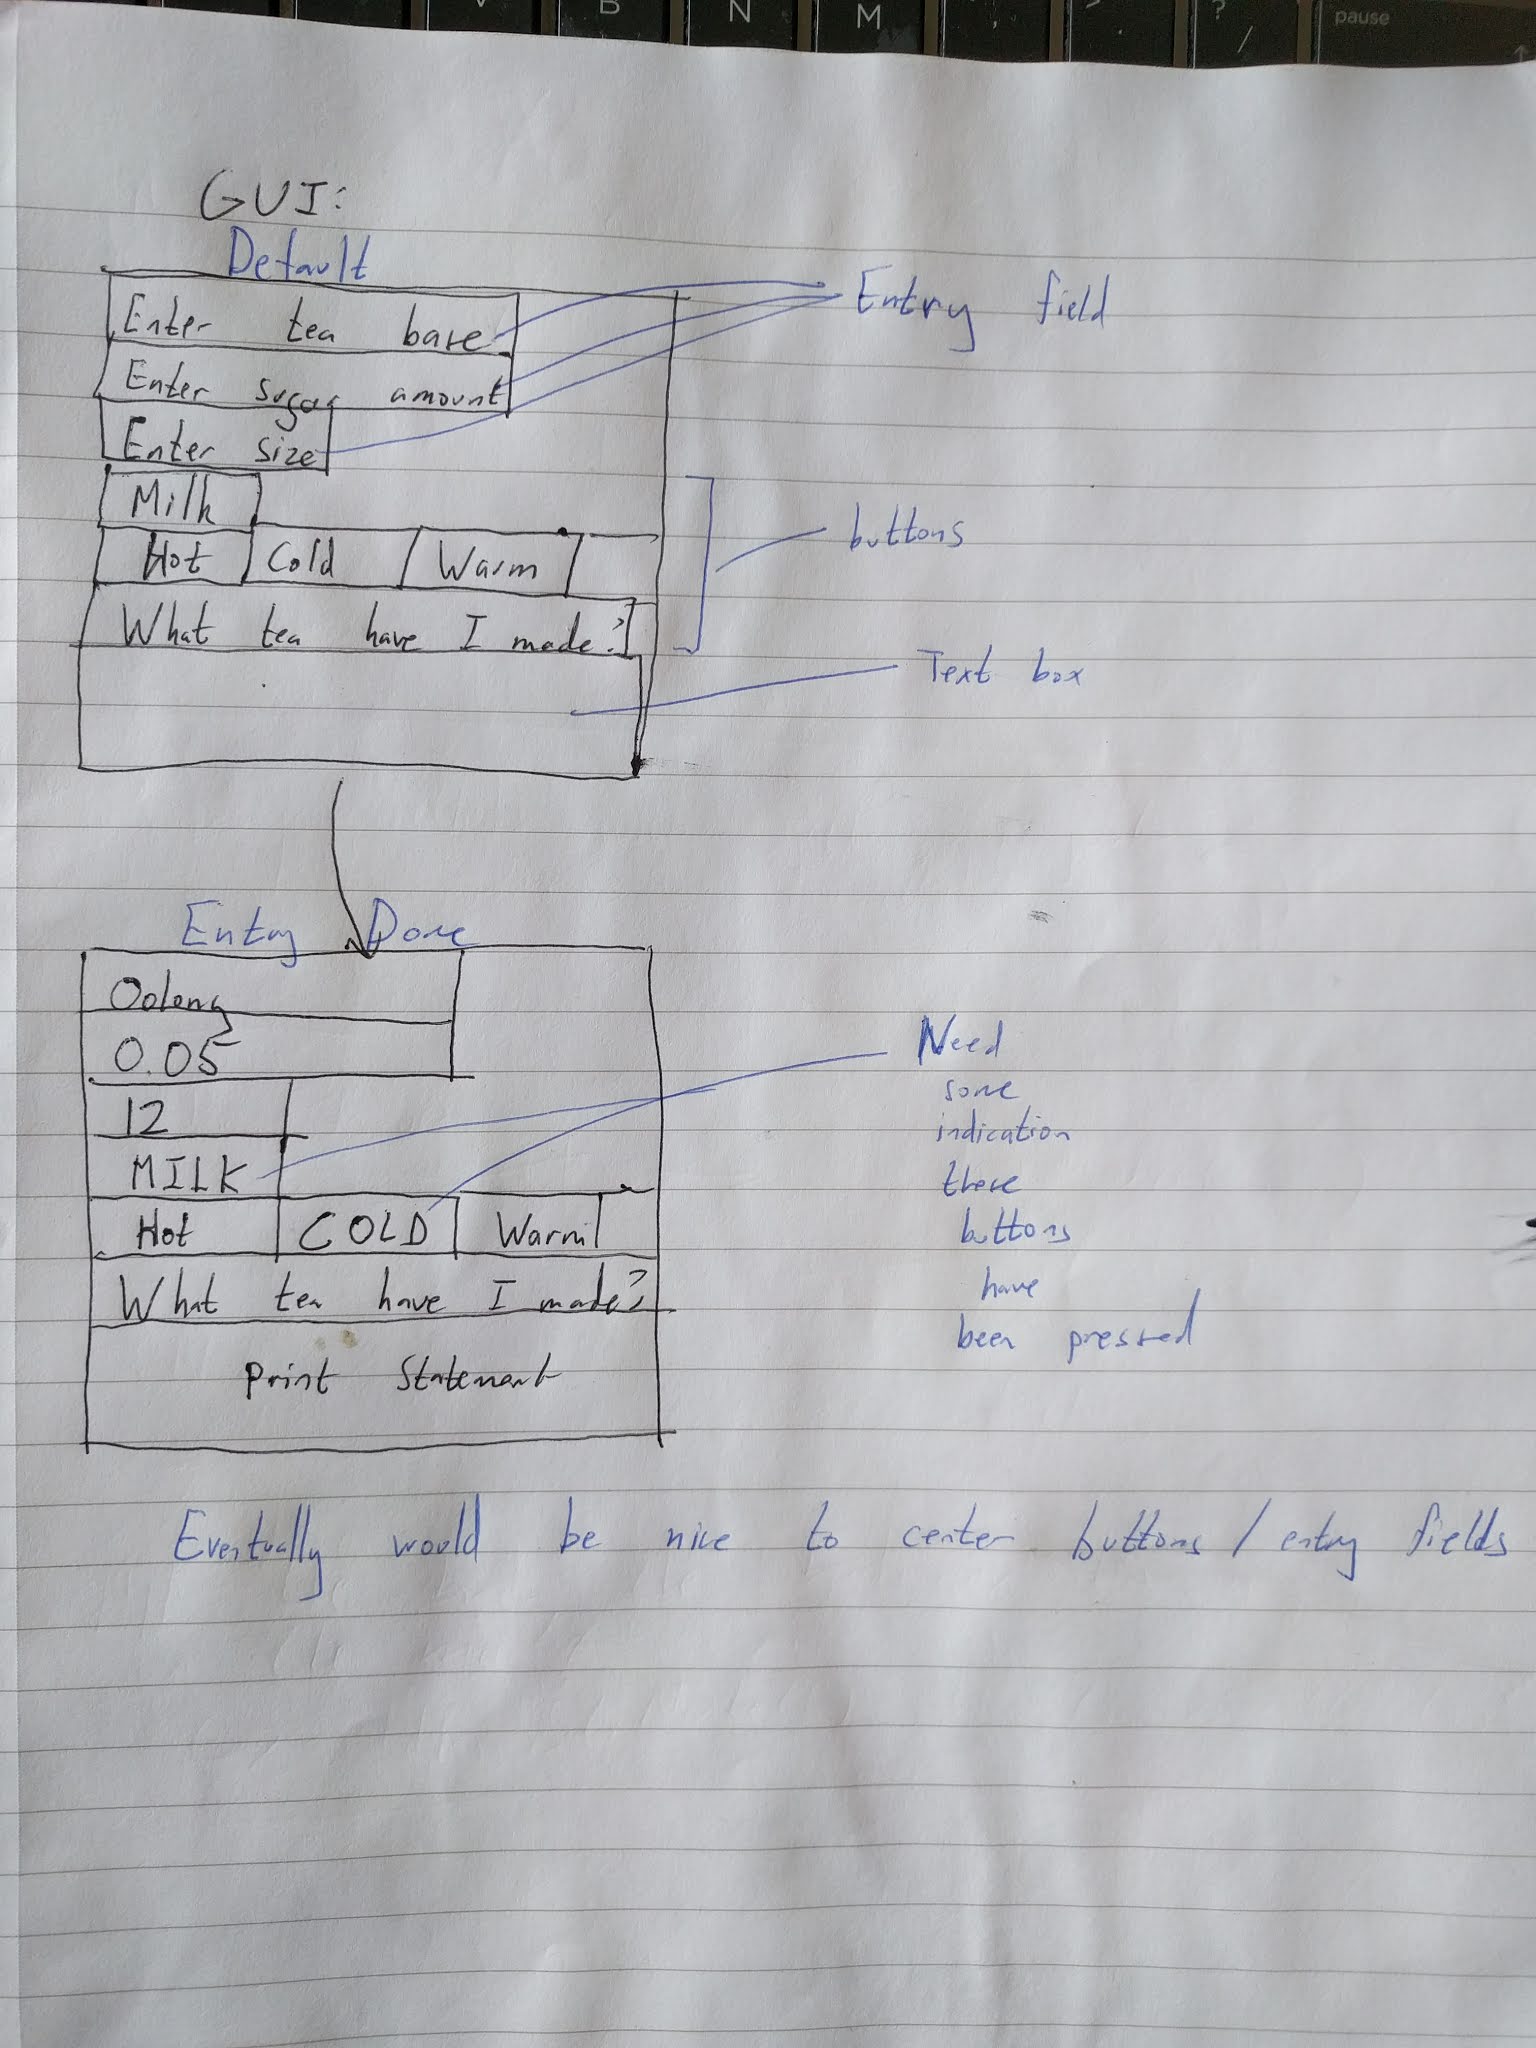 B N M , > ? / pause
GUI:
Default
Enter tea base
Entry field
Enter sugar amount
Enter size
Milk
Hot Cold Warm
buttons
What tea have I made?
Text box
Entry Done
Oolong
0.05
12
MILK
Hot COLD Warm
What tea have I made?
Print Statement
Need
some
indication
these
buttons
have
been pressed
Eventually would be nice to center buttons / entry fields